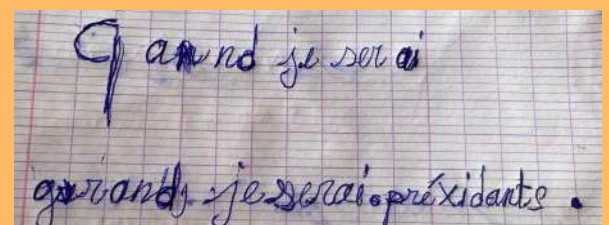 Qannd je serai
gurand, je serai préxidante.